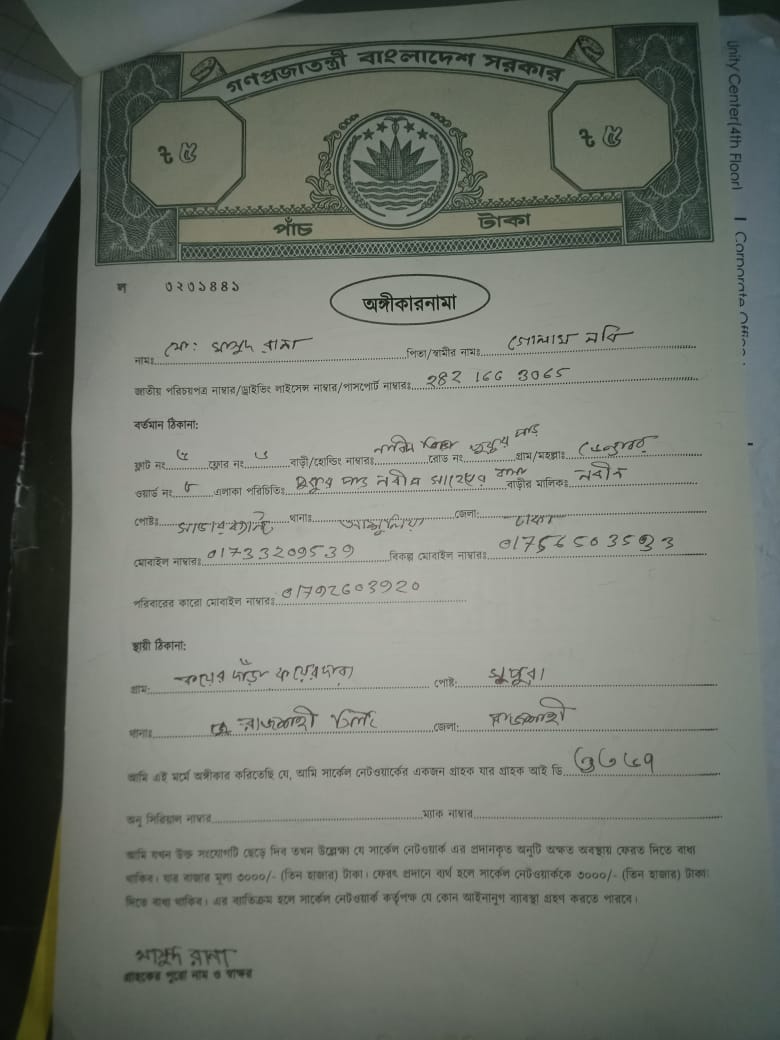 গণপ্রজাতন্ত্রী বাংলাদেশ সরকার
৳ ৫ ৳ ৫
পাঁচ টাকা
Unity Center(4th Floor) | Corporate Office:
ল ০২০১৪৪১
অঙ্গীকারনামা
নামঃ মো: মাসুদ রানা পিতা/স্বামীর নামঃ গোলাম নবি
জাতীয় পরিচয়পত্র নাম্বার/ড্রাইভিং লাইসেন্স নাম্বার/পাসপোর্ট নাম্বারঃ 282 166 3065
বর্তমান ঠিকানা:
ফ্লাট নং ফ্লোর নং বাড়ী/হোল্ডিং নাম্বারঃ রোড নং পুকুর পাড় গ্রাম/মহল্লাঃ
ওয়ার্ড নং এলাকা পরিচিতিঃ পুকুর পাড় নবীন সাহেবের বাসা বাড়ীর মালিকঃ নবীন
পোষ্টঃ থানাঃ আশুলিয়া জেলা: ঢাকা
মোবাইল নাম্বারঃ 01733209539 বিকল্প মোবাইল নাম্বারঃ
পরিবারের কারো মোবাইল নাম্বারঃ
স্থায়ী ঠিকানা:
গ্রাম: পোষ্ট:
থানাঃ রাজশাহী জেলা: রাজশাহী
আমি এই মর্মে অঙ্গীকার করিতেছি যে, আমি সার্কেল নেটওয়ার্কের একজন গ্রাহক যার গ্রাহক আই ডি
অনু সিরিয়াল নাম্বার ম্যাক নাম্বার
আমি যখন উক্ত সংযোগটি ছেড়ে দিব তখন উল্লেক্ষ্য যে সার্কেল নেটওয়ার্ক এর প্রদানকৃত অনুটি অক্ষত অবস্থায় ফেরত দিতে বাধ্য
থাকিব। যার বাজার মূল্য ৩০০০/- (তিন হাজার) টাকা। ফেরৎ প্রদানে ব্যর্থ হলে সার্কেল নেটওয়ার্ককে ৩০০০/- (তিন হাজার) টাকা
দিতে বাধ্য থাকিব। এর ব্যতিক্রম হলে সার্কেল নেটওয়ার্ক কর্তৃপক্ষ যে কোন আইনানুগ ব্যবস্থা গ্রহণ করতে পারবে।
মাসুদ রানা
গ্রাহকের পুরো নাম ও স্বাক্ষর